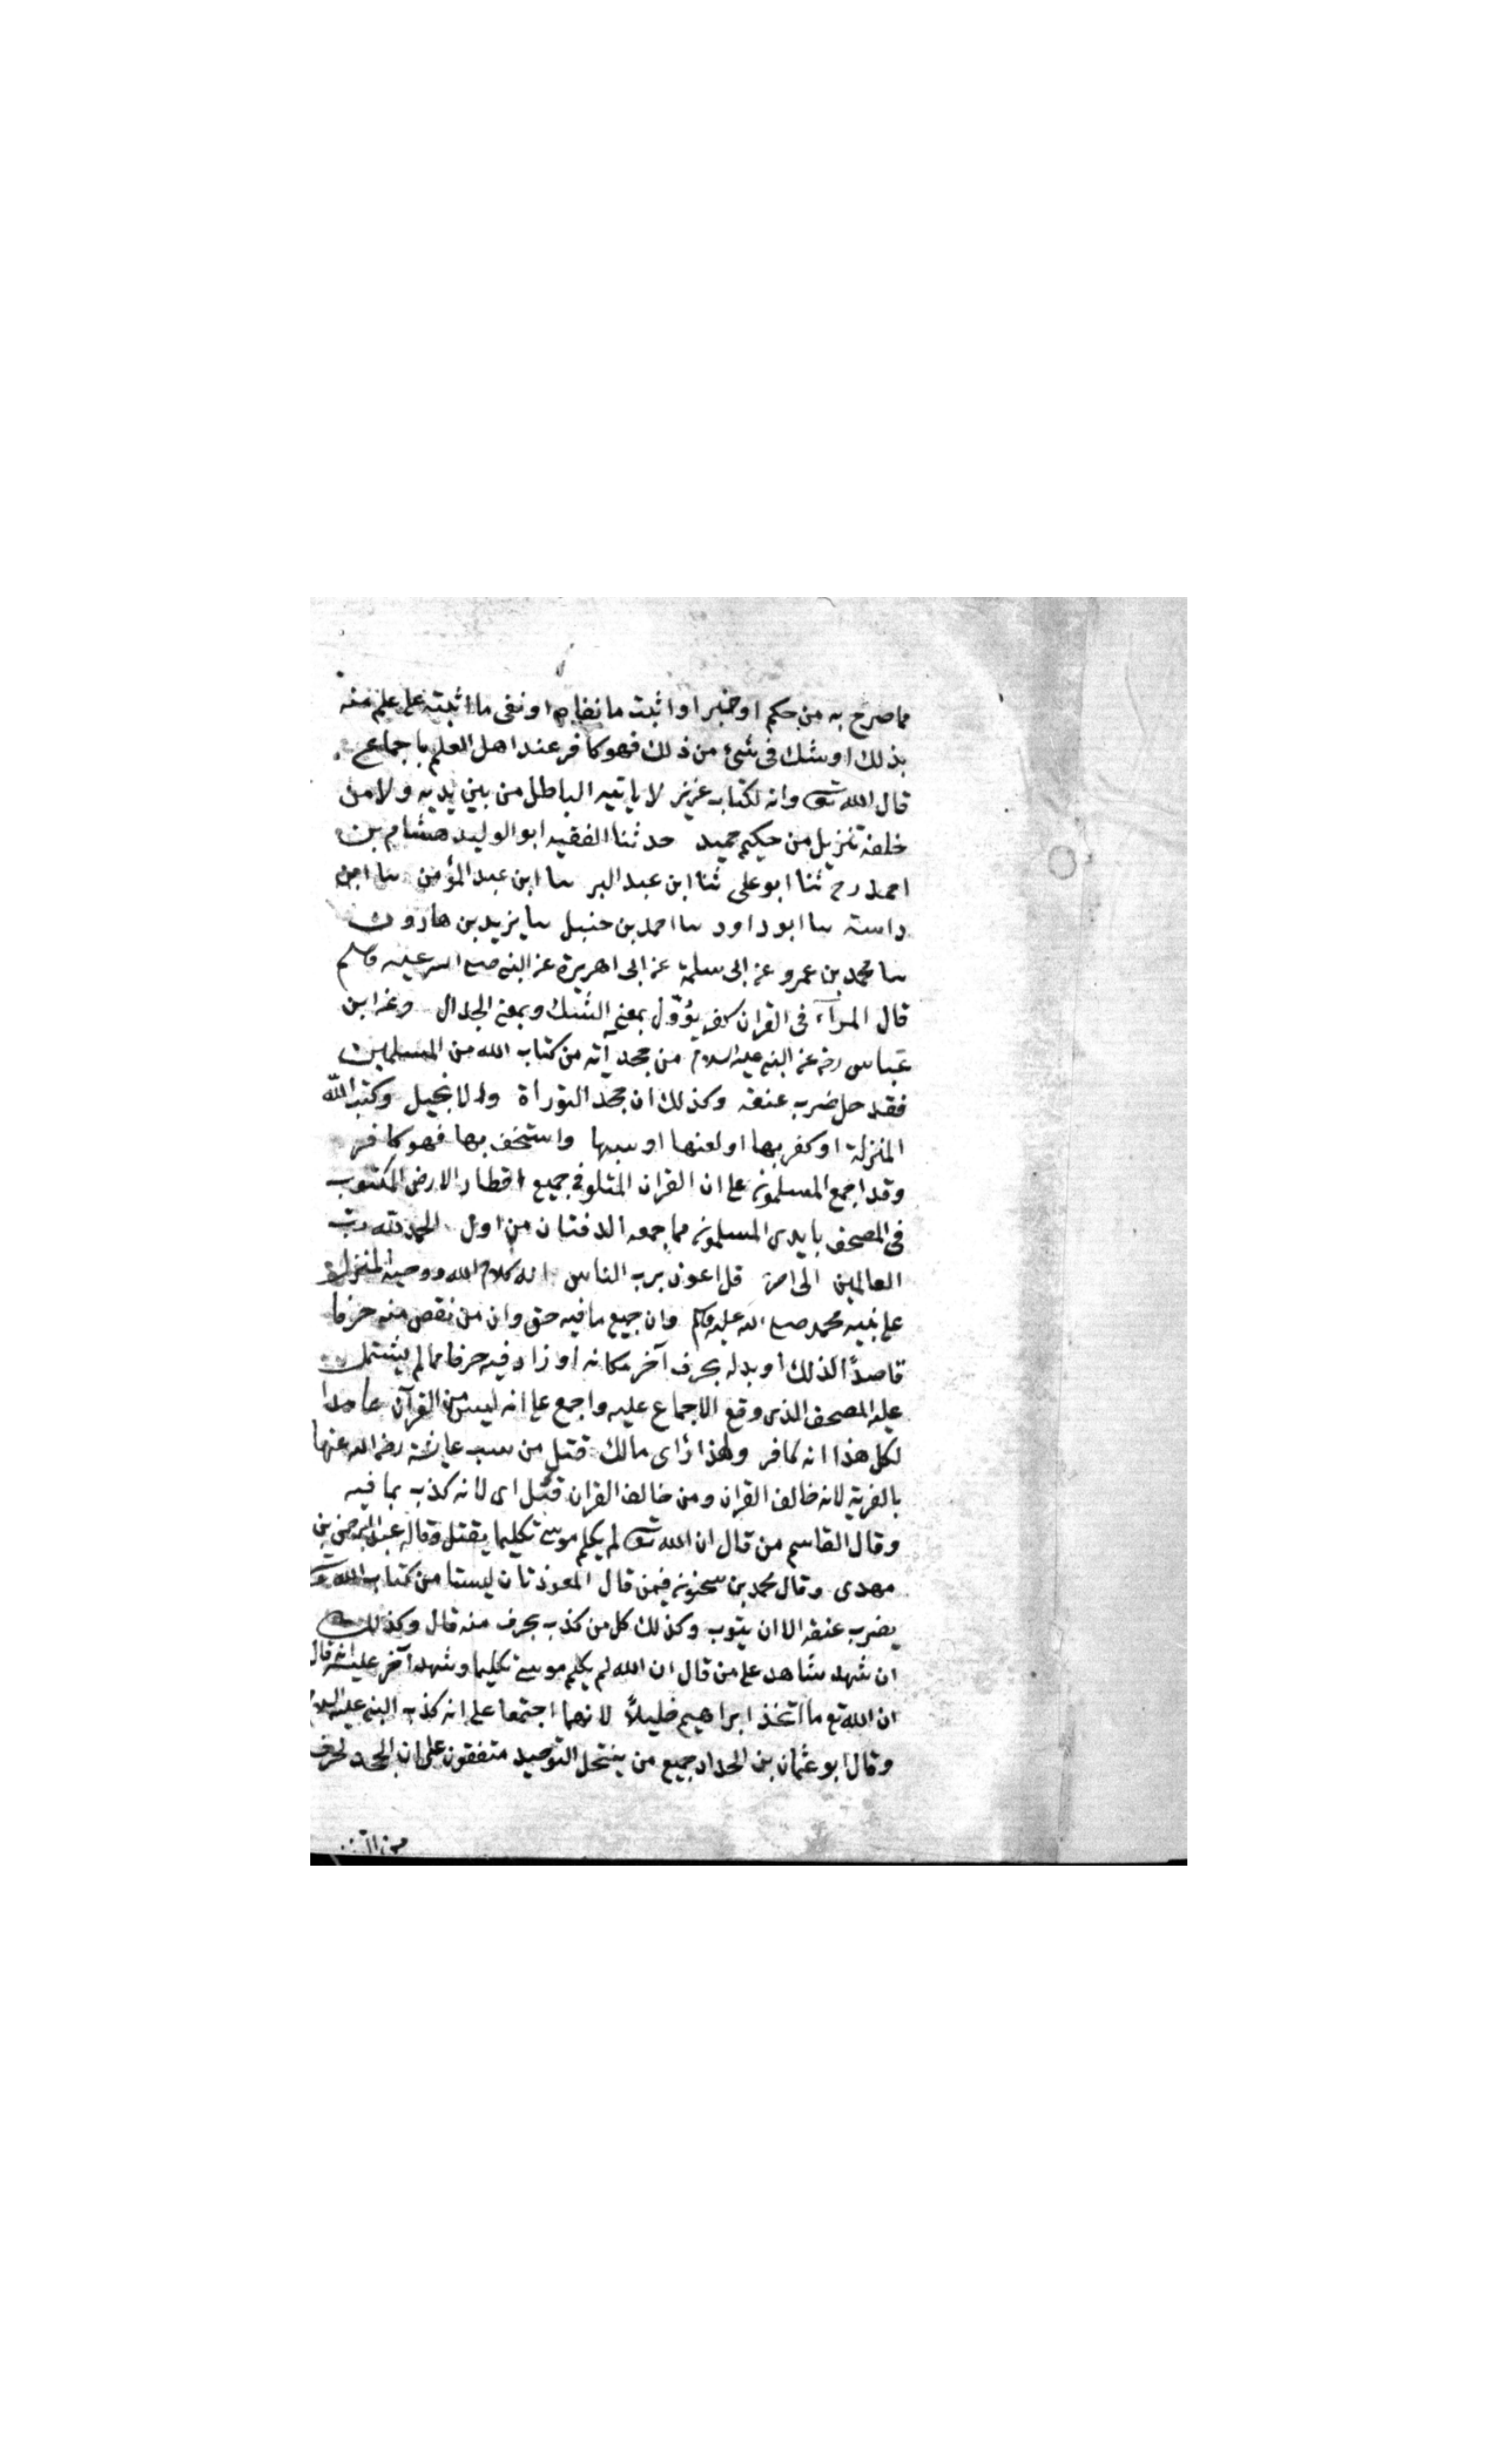 مما صرح به من حكم او خبر او اثبت ما نفاه او نفى ما اثبته على علم منه
بذلك او شك فى شئ من ذلك فهو كافر عند اهل العلم باجماع
قال الله تعـ وانه لكتاب عزيز لا ياتيه الباطل من بين يديه ولا من
خلفه تنزيل من حكيم حميد حدثنا الفقيه ابو الوليد هشام بن
احمد رح ثنا ابو على ثنا ابن عبد البر ثنا ابن عبد المؤمن ثنا ابن
داسة ثنا ابو داود ثنا احمد بن حنبل ثنا يزيد بن هارون
ثنا محمد بن عمرو عن ابى سلمة عن ابى هريرة عن النبى صلى الله عليه وسلم
قال المرآء فى القران كفر يؤوّل بمعنى الشك وبمعنى الجدال وعن ابن
عباس رضـ عن النبى عليه السلام من جحد آية من كتاب الله من المسلمين
فقد حل ضرب عنقه وكذلك ان جحد التوراة والانجيل وكتب الله
المنزلة او كفر بها او لعنها او سبها واستخف بها فهو كافر
وقد اجمع المسلمون على ان القران المتلو فى جميع اقطار الارض المكتوب
فى المصحف بايدى المسلمون مما جمعه الدفتان من اول الحمد لله رب
العالمين الى اخر قل اعوذ برب الناس انه كلام الله ووحيه المنزل
على نبيه محمد صلى الله عليه وسلم وان جميع ما فيه حق وان من نقص منه حرفا
قاصدًا لذلك او بدله بحرف آخر مكانه او زاد فيه حرفا مما لم يشتمل
عليه المصحف الذى وقع الاجماع عليه واجمع على انه ليس من القرآن عامدا
لكل هذا انه كافر ولهذا راى مالك قتل من سب عايشة رضى الله عنها
بالفرية لانه خالف القران ومن خالف القران قتل اى لانه كذب بما فيه
وقال القاسم من قال ان الله تعـ لم يكلم موسى تكليما يقتل وقاله عبد الرحمن بن
مهدى وقال محمد بن سحنون فيمن قال المعوذتان ليستا من كتاب الله تعـ
يضرب عنقه الا ان يتوب وكذلك كل من كذب بحرف منه قال وكذلك
ان شهد شاهد على من قال ان الله لم يكلم موسى تكليما وشهد آخر عليه انه قال
ان الله تع ما اتخذ ابراهيم خليلاً لانهما اجتمعا على انه كذب النبى عليه السلام
وقال ابو عثمان بن الحداد جميع من ينتحل التوحيد متفقون على ان الجحد لحرف